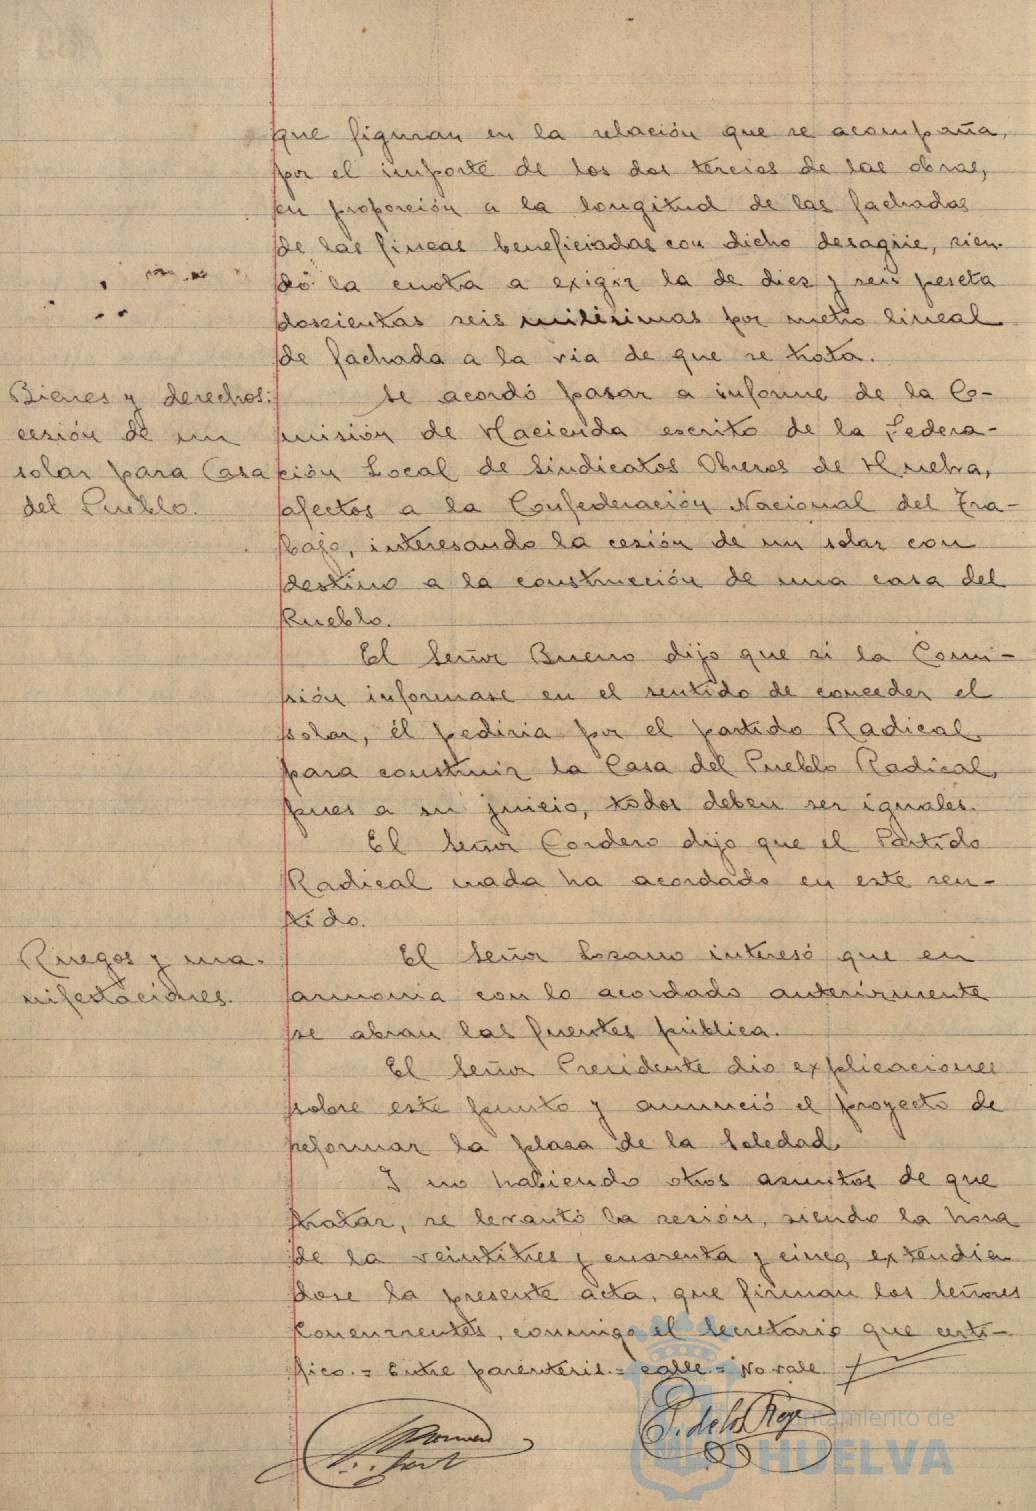 que figuran en la relación que se acompaña,
por el importe de los dos tercios de las obras,
en proporción a la longitud de las fachadas
de las fincas beneficiadas con dicho desagüe, sien-
do la cuota a exigir la de diez y seis peseta
doscientas seis milésimas por metro lineal
de fachada a la via de que se trata.
Bienes y derechos:
cesión de un
solar para Casa
del Pueblo.
Se acordó pasar a informe de la Co-
misión de Hacienda escrito de la Federa-
ción Local de Sindicatos Obreros de Huelva,
afectos a la Confederación Nacional del Tra-
bajo, interesando la cesión de un solar con
destino a la construcción de una casa del
Pueblo.
El Señor Bueno dijo que si la Comi-
sión informase en el sentido de conceder el
solar, él pediria por el partido Radical
para construir la Casa del Pueblo Radical,
pues a su juicio, todos deben ser iguales.
El Señor Cordero dijo que el Partido
Radical nada ha acordado en este sen-
tido.
Ruegos y ma-
nifestaciones.
El Señor Lozano interesó que en
armonia con lo acordado anteriormente
se abran las fuentes pública.
El Señor Presidente dio explicaciones
sobre este punto y anunció el proyecto de
reformar la plaza de la Soledad.
Y no habiendo otros asuntos de que
tratar, se levantó la sesión, siendo la hora
de la veintitres y cuarenta y cinco, extendien
dose la presente acta, que firman los Señores
Concurrentes, conmigo el Secretario que certi-
fico. = Entre parentesis = calle = No vale
P. de los Reye
Ayuntamiento de
HUELVA